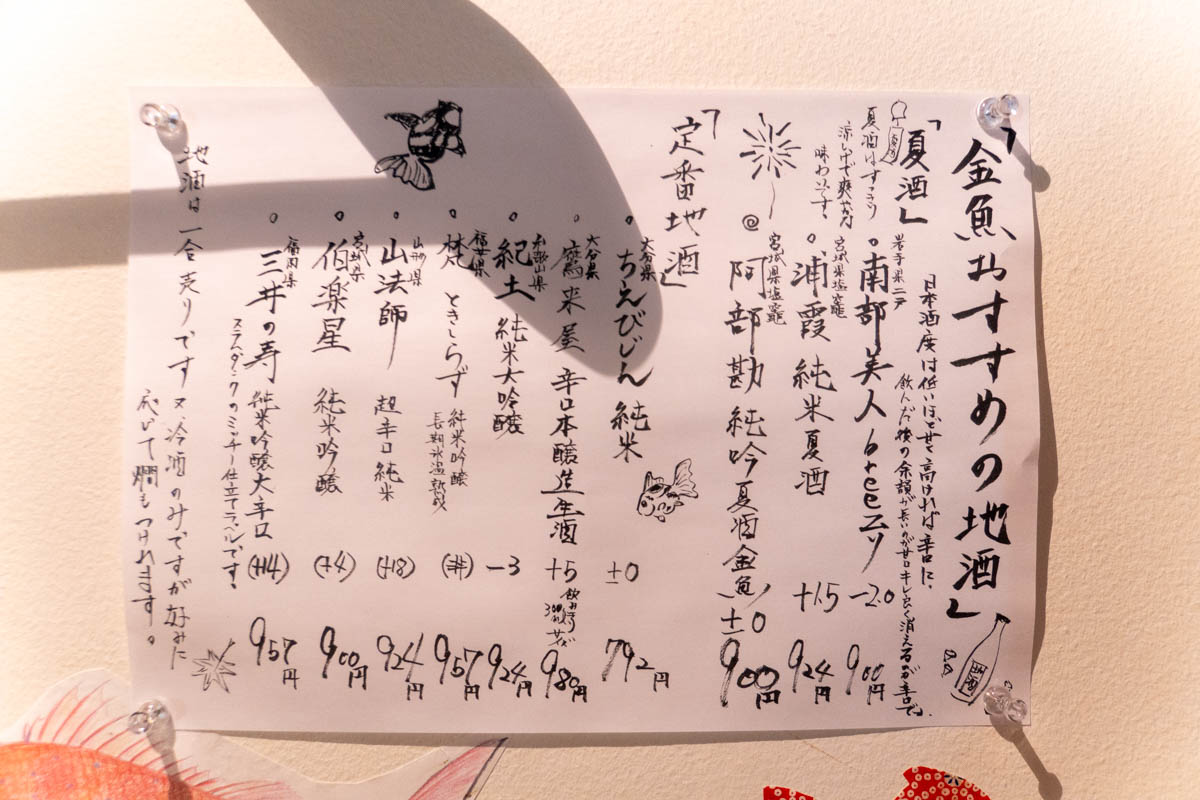 「金魚おすすめの地酒」
日本酒度は低いほど甘く高ければ辛口に、
飲んだ後の余韻が長いのが甘口キレ良く消えるのが辛口です。
「夏酒」
夏酒はすっきり
涼しげで爽やかな
味わいです。
岩手県二戸
・南部美人 -20 900円
宮城県塩竈
・浦霞 純米夏酒 +1.5 924円
宮城県塩竈
@ 阿部勘 純吟夏酒金魚 ±0 900円
「定番地酒」
大分県
・ちえびじん 純米 ±0 792円
大分県
・鷹来屋 辛口本醸造生酒 +5 980円
飲み切り
300mlサイズ
和歌山県
・紀土 純米大吟醸 -3 924円
福井県
・梵 ときしらず 純米吟醸 957円
長期氷温熟成
山形県
・山法師 超辛口純米 (+18) 924円
宮城県
・伯楽星 純米吟醸 (+4) 900円
福岡県
・三井の寿 純米吟醸大辛口 (+14) 957円
スラムダンクのミッチー仕立てラベルです。
地酒は一合売りです又、冷酒のみですが好みに
応じて燗もつけれます。